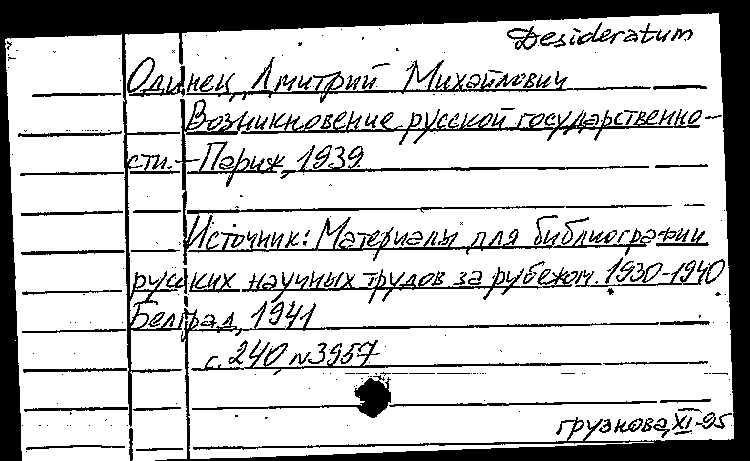 Desideratum
Одинец, Дмитрий Михайлович
Возникновение русской государственно-
сти. – Париж, 1939
Источник: Материалы для библиографии
русских научных трудов за рубежом. 1930-1940
Белград, 1941
с. 240, N 3957
Грузнова, XI-95